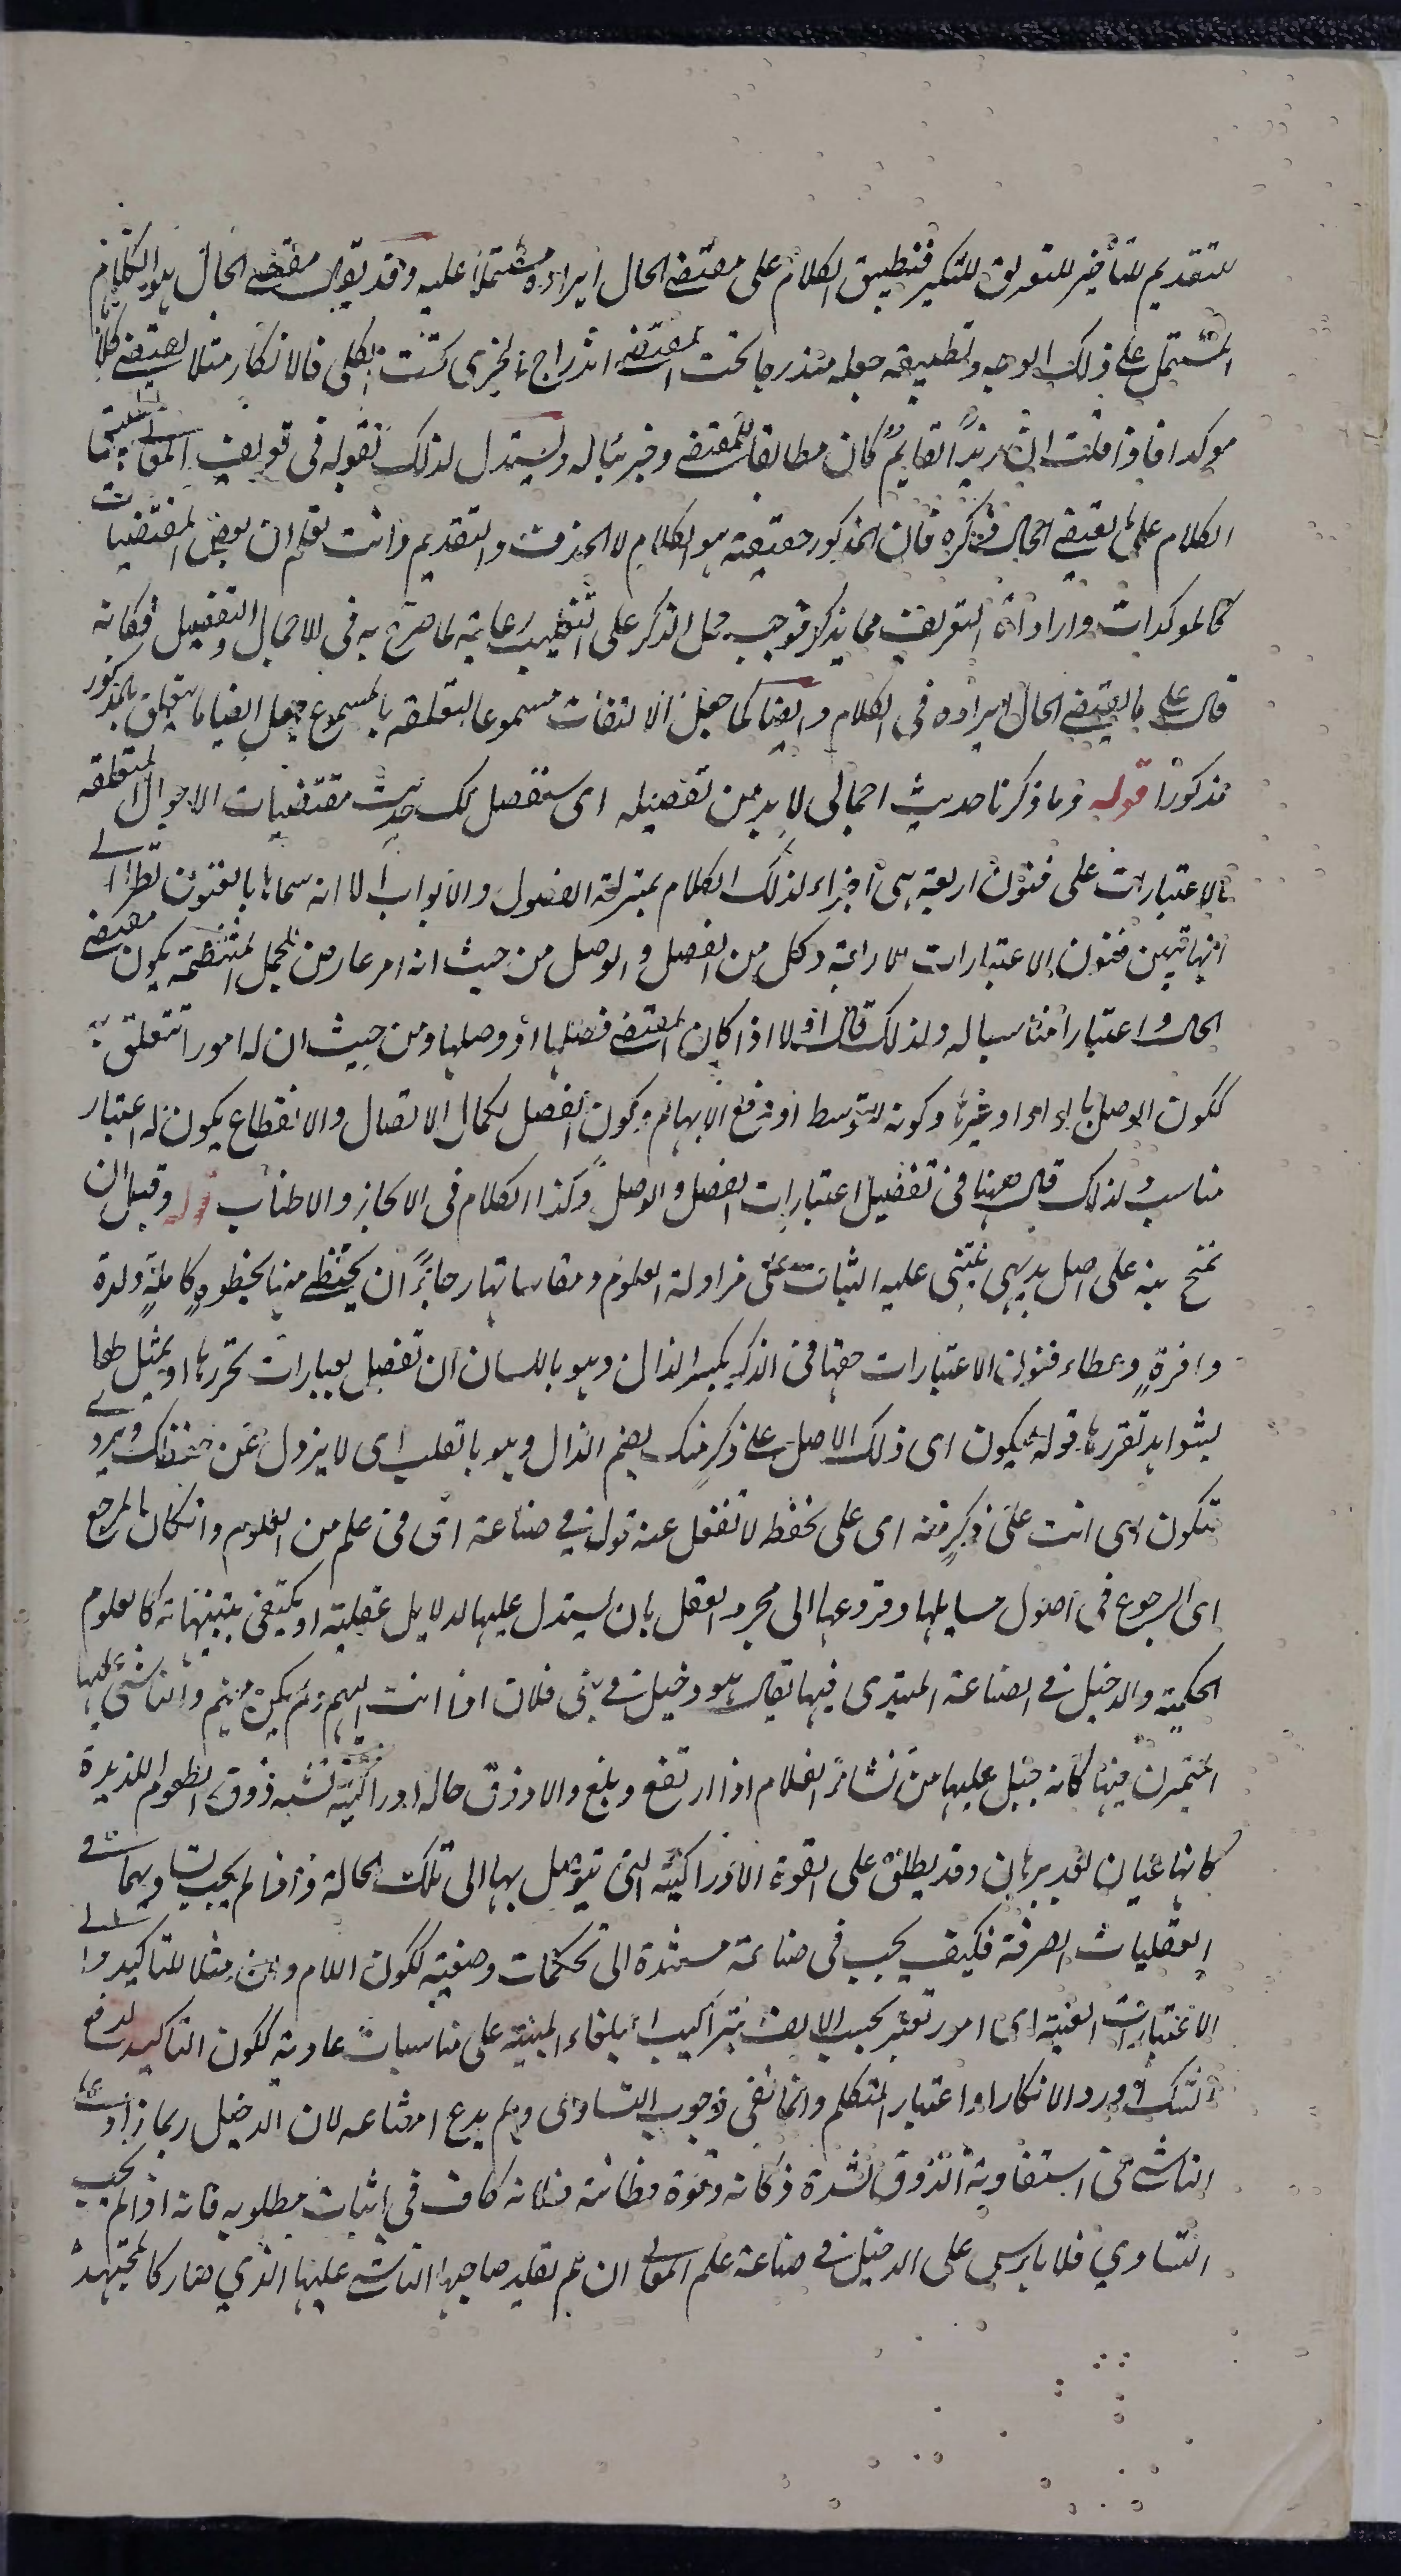 للتقديم للتأخير للتعريف للتنكير فتطبيق الكلام على مقتضى الحال ايراده مشتملا عليه وقد يقال مقتضى الحال هو الكلام
المشتمل على ذلك الوجه وتطبيقه جعله مندرجا تحت المقتضى اندراج الجزئى تحت الكلى فالانكار مثلا يقتضى كلاما
موكدا فاذا قلت ان زيدًا لقايمٌ كان مطابقا للمقتضى وجزئيا له ويستدل لذلك بقوله فى تعريف المعانى تطبيق
الكلام على ما يقتضى الحال ذكره فان المذكور حقيقة هو الكلام لا الحذف والتقديم وانت تعلم ان بعض المقتضيات
كالموكدات واداة التعريف مما يذكر فوجب حمل الذكر على التغليب رعاية لما صرح به فى الاجمال والتفصيل فكانه
قال على ما يقتضى الحال ايراده فى الكلام وايضا كما جعل الالتفات مسموعا لتعلقه بالمسموع جعل ايضا ما يتعلق بالمذكور
مذكورًا قوله وما ذكرنا حديث اجمالى لا بد من تفصيله اى ستفصل لك حديث مقتضيات الاحوال المتعلقة
بالاعتبارات على فنون اربعة هى اجزاء لذلك الكلام بمنزلة الفصول والابواب الا انه سماها بالفنون نظرا الى
انها تبين فنون الاعتبارات الاربعة وكل من الفصل والوصل من حيث انه امر عارض للجمل المنتظمة يكون مقتضى
الحال واعتبارا مناسبا له ولذلك قال اولا اذا كان المقتضى فصلها او وصلها ومن حيث ان له امورا تتعلق به
ككون الوصل بالواو او غيرها وكونه للتوسط او لرفع الابهام وكون الفصل لكمال الاتصال والانقطاع يكون له اعتبار
مناسب ولذلك قال ههنا فى تفصيل اعتبارات الفصل والوصل وكذا الكلام فى الايجاز والاطناب قوله وقبل ان
نمنح ننبه على اصل بديهى يبتنى عليه الثبات على مزاولة العلوم ومقاساتها رجاءً ان يحتظى منها بحظوةٍ كاملةٍ ولذة
وافرةٍ وعطاء فنون الاعتبارات حقها فى الذكر بكسر الذال وهو باللسان ان تفصل بعبارات تحررها او يمثل لها
بشواهد تقررها قوله ليكون اى ذلك الاصل على ذكر منك بضم الذال وهو بالقلب اى لا يزول عن حفظك ويروى
لتكون اى انت على ذكرٍ منه اى على تحفظ لا تغفل عنه قوله فى صناعة اى فى علم من العلوم وان كان المرجع
اى الرجوع فى اصول مسايلها وفروعها الى مجرد العقل بان يستدل عليها بدلايل عقلية او يكتفى بتنبيهاته كالعلوم
الحكمية والدخيل فى الصناعة المبتدى فيها يقال هو دخيل فى بنى فلان اذا انتسب اليهم ولم يكن منهم والناشى عليها
المتمرن فيها كانه جبل عليها من نشأ الغلام اذا ارتفع وبلغ والاذوق حاله ادراكية تشبه ذوق الطعوم اللذيذة
كانها عيان لغدير بان وقد يطلق على القوة الادراكية التى يتوصل بها الى تلك الحالة واذا لم يجب تساويهما فى
العقليات الصرفة فكيف يجب فى صناعة مستندة الى تحكمات وضعية ككون اللام وان مثلا للتاكيد والى
الاعتبارات الفنية اى امور تعتبر بحسب الالف بتراكيب البلغاء المبنية على مناسبات عادية ككون التاكيد لدفع
الشك ورد الانكار او اعتبار المتكلم وانما نفى وجوب التساوى ولم يدع امتناعه لان الدخيل ربما زاد على
الناشى فى استفادية الذوق لشدة ذكائه وقوة فطانته ولانه كاف فى اثبات مطلوبه فانه اذا لم يجب
التساوى فلا باس على الدخيل فى صناعة علم المعانى ان لم يقلد صاحبها الناشى عليها الذى صار كالمجتهد